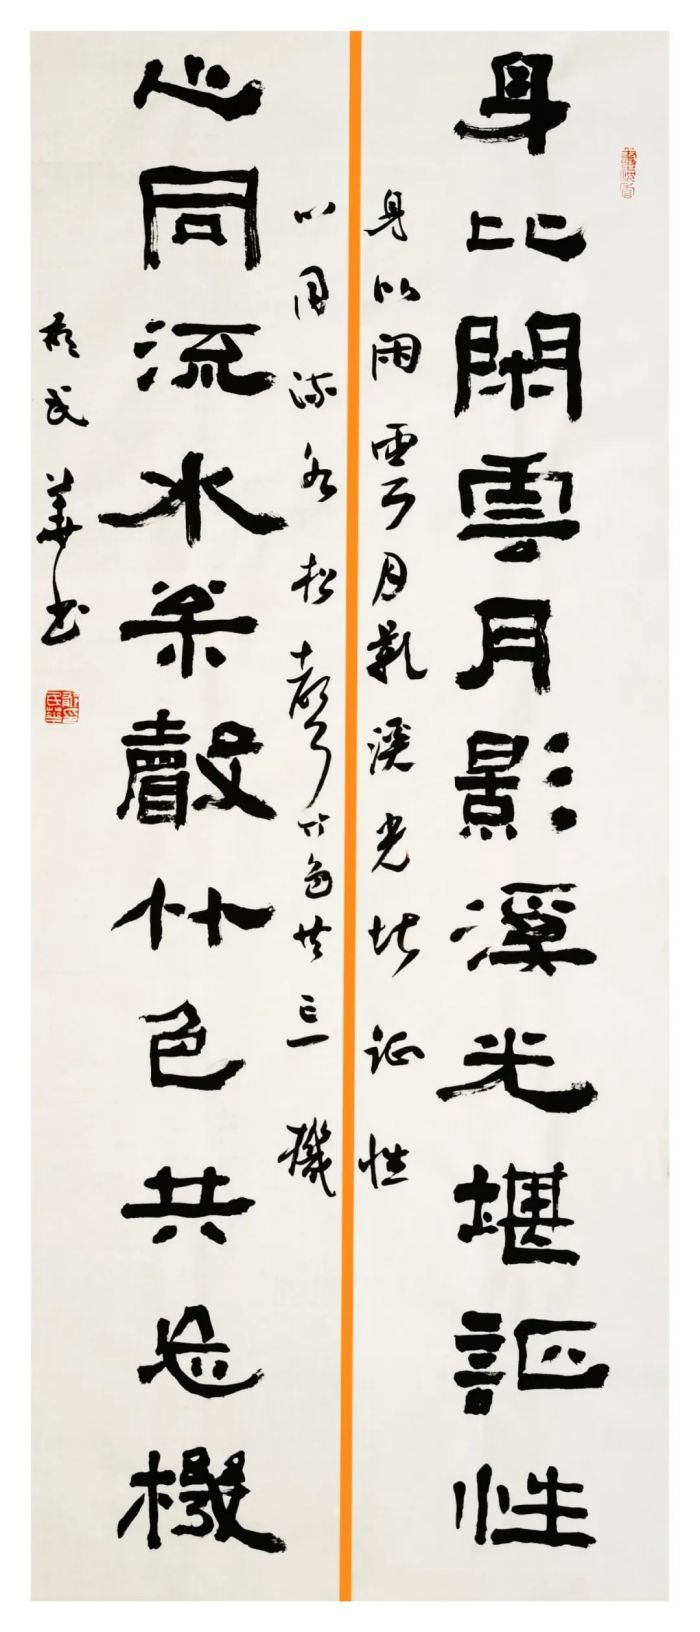 身比閑雲月影溪光堪証性
身比闲雲月影溪光堪证性
心同流水松聲竹色共忘機
心同流水枀聲竹色共忘機
民華书